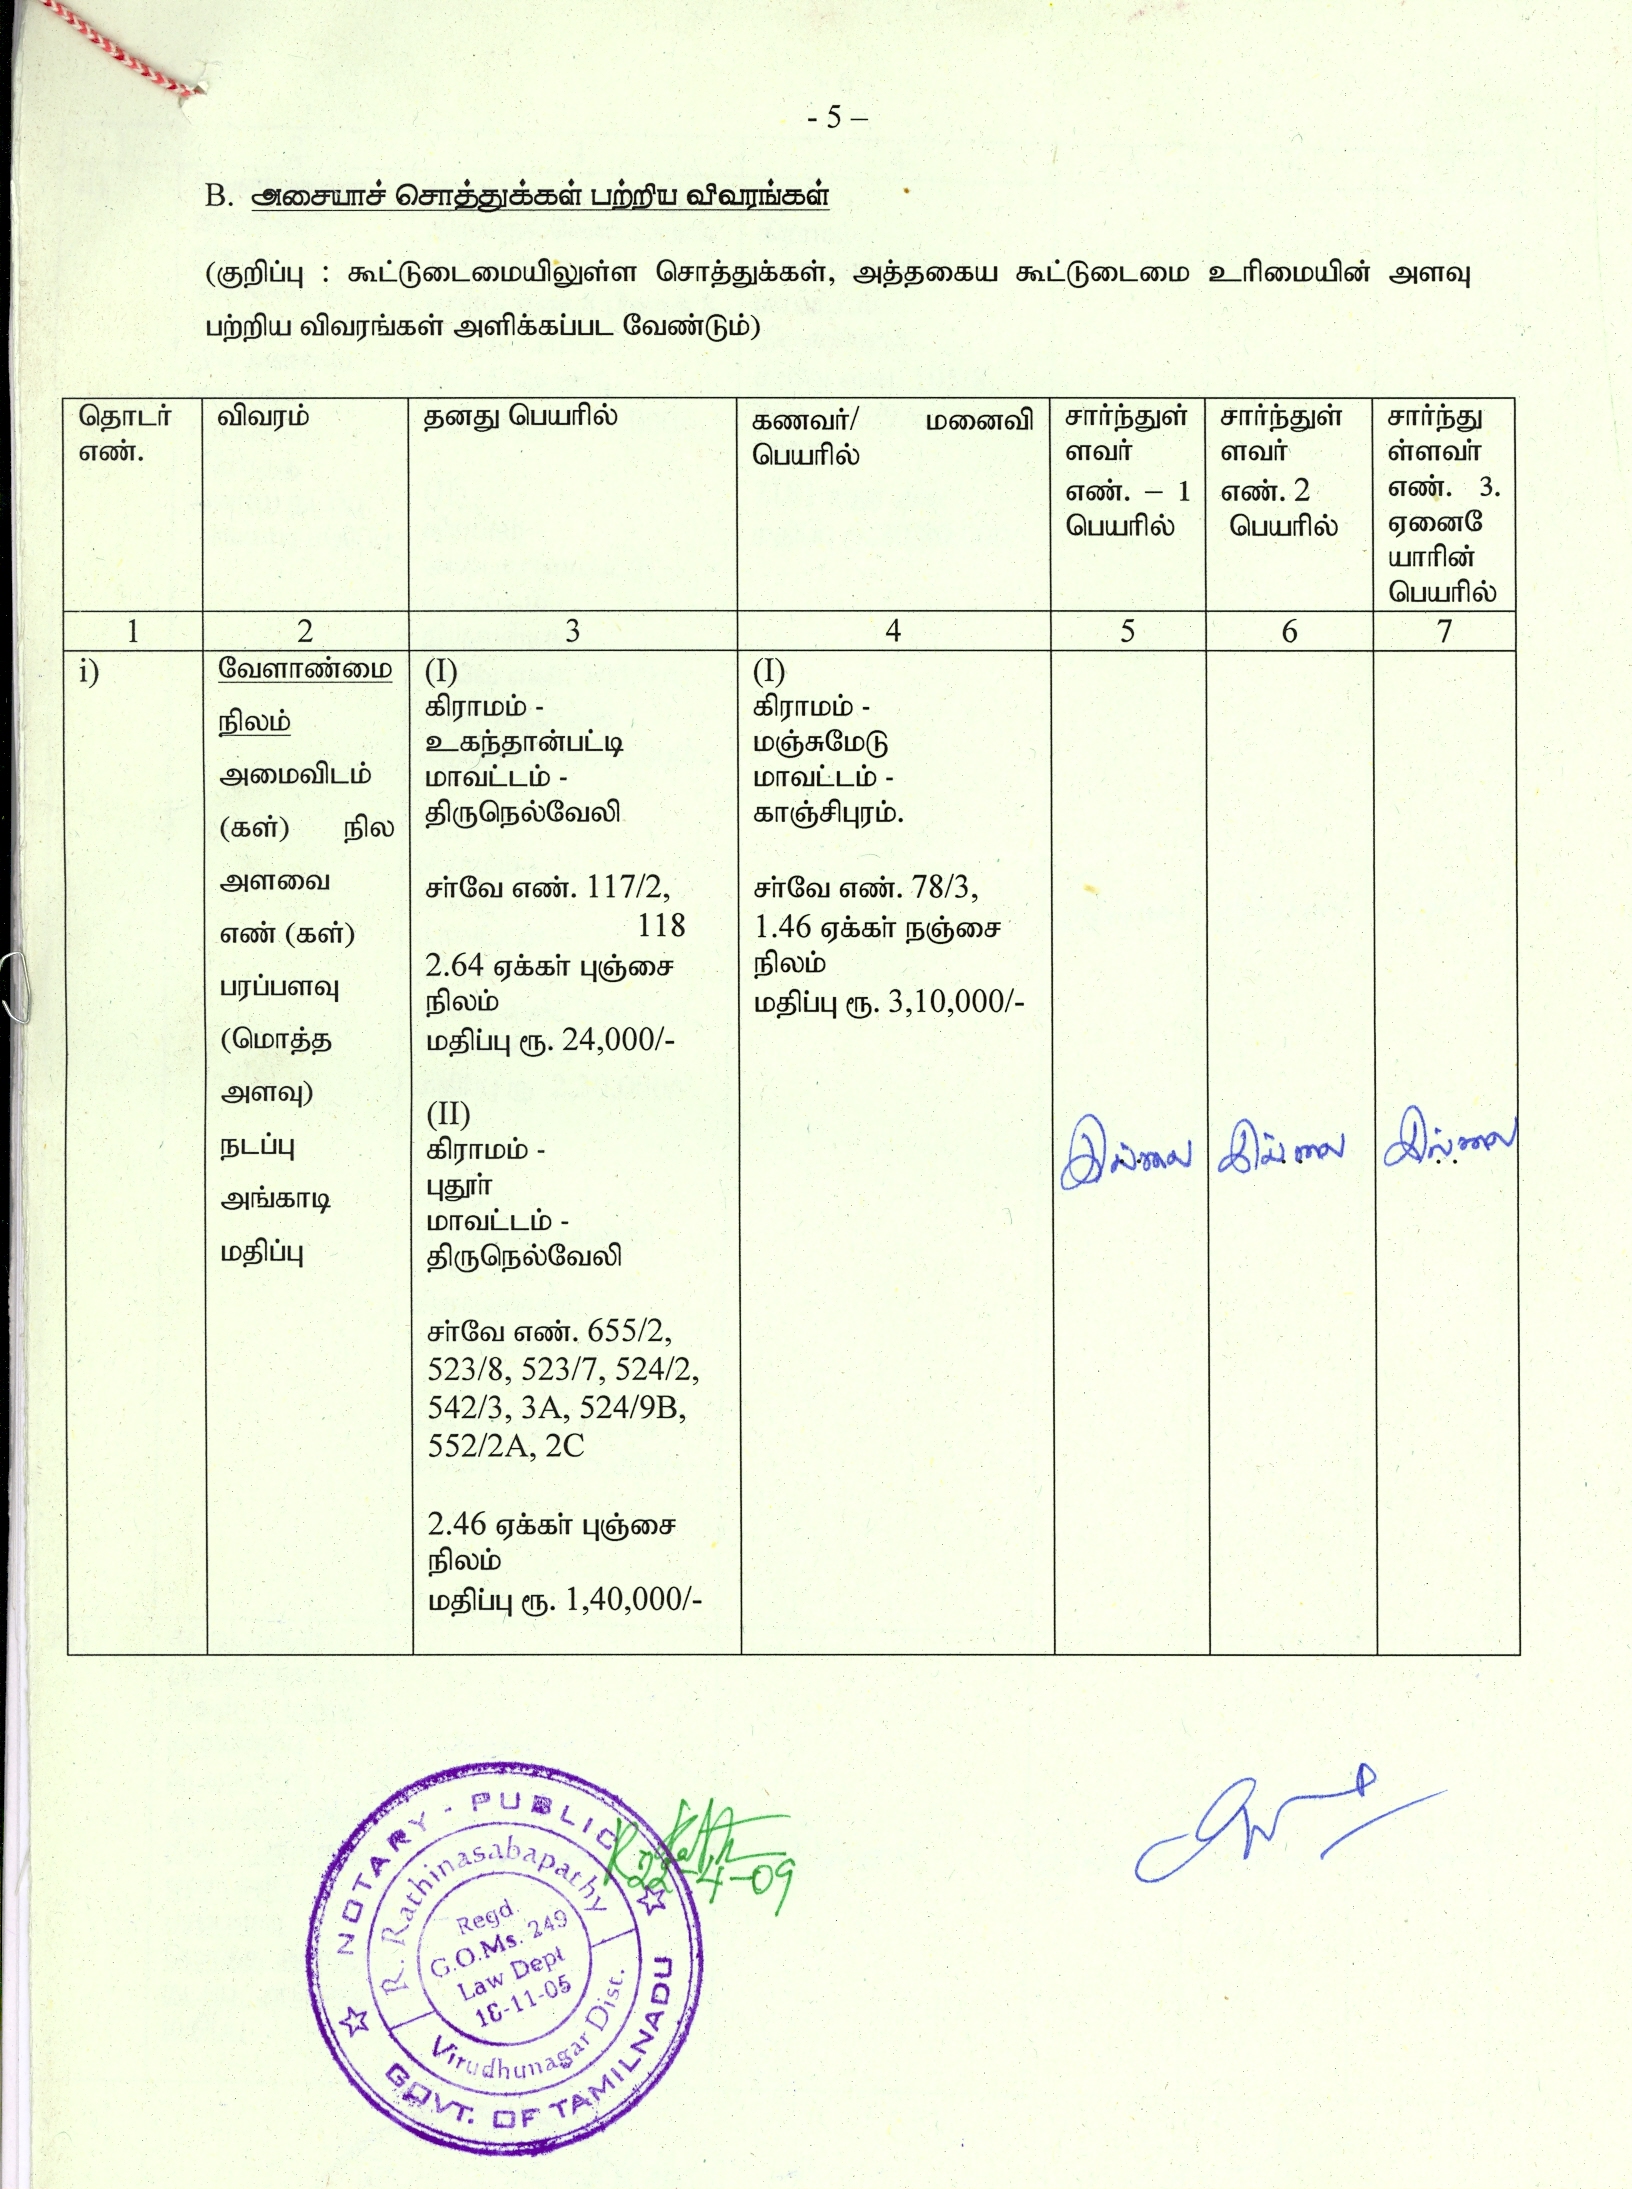 - 5 –
B. அசையாச் சொத்துக்கள் பற்றிய விவரங்கள்
(குறிப்பு : கூட்டுடைமையிலுள்ள சொத்துக்கள், அத்தகைய கூட்டுடைமை உரிமையின் அளவு
பற்றிய விவரங்கள் அளிக்கப்பட வேண்டும்)
தொடர்
எண்.
விவரம்
தனது பெயரில்
கணவர்/ மனைவி
பெயரில்
சார்ந்துள்
ளவர்
எண். – 1
பெயரில்
சார்ந்துள்
ளவர்
எண். 2
பெயரில்
சார்ந்து
ள்ளவர்
எண். 3.
ஏனையே
யாரின்
பெயரில்
1 2 3 4 5 6 7
i)
வேளாண்மை
நிலம்
அமைவிடம்
(கள்) நில
அளவை
எண் (கள்)
பரப்பளவு
(மொத்த
அளவு)
நடப்பு
அங்காடி
மதிப்பு
(I)
கிராமம் -
உகந்தான்பட்டி
மாவட்டம் -
திருநெல்வேலி
சர்வே எண். 117/2,
118
2.64 ஏக்கர் புஞ்சை
நிலம்
மதிப்பு ரூ. 24,000/-
(II)
கிராமம் -
புதூர்
மாவட்டம் -
திருநெல்வேலி
சர்வே எண். 655/2,
523/8, 523/7, 524/2,
542/3, 3A, 524/9B,
552/2A, 2C
2.46 ஏக்கர் புஞ்சை
நிலம்
மதிப்பு ரூ. 1,40,000/-
(I)
கிராமம் -
மஞ்சுமேடு
மாவட்டம் -
காஞ்சிபுரம்.
சர்வே எண். 78/3,
1.46 ஏக்கர் நஞ்சை
நிலம்
மதிப்பு ரூ. 3,10,000/-
இல்லை
இல்லை
இல்லை
NOTARY - PUBLIC
R. Rathinasabapathy
Regd.
G.O.Ms. 249
Law Dept
18-11-05
Virudhunagar Dist.
GOVT. OF TAMILNADU
22-4-09